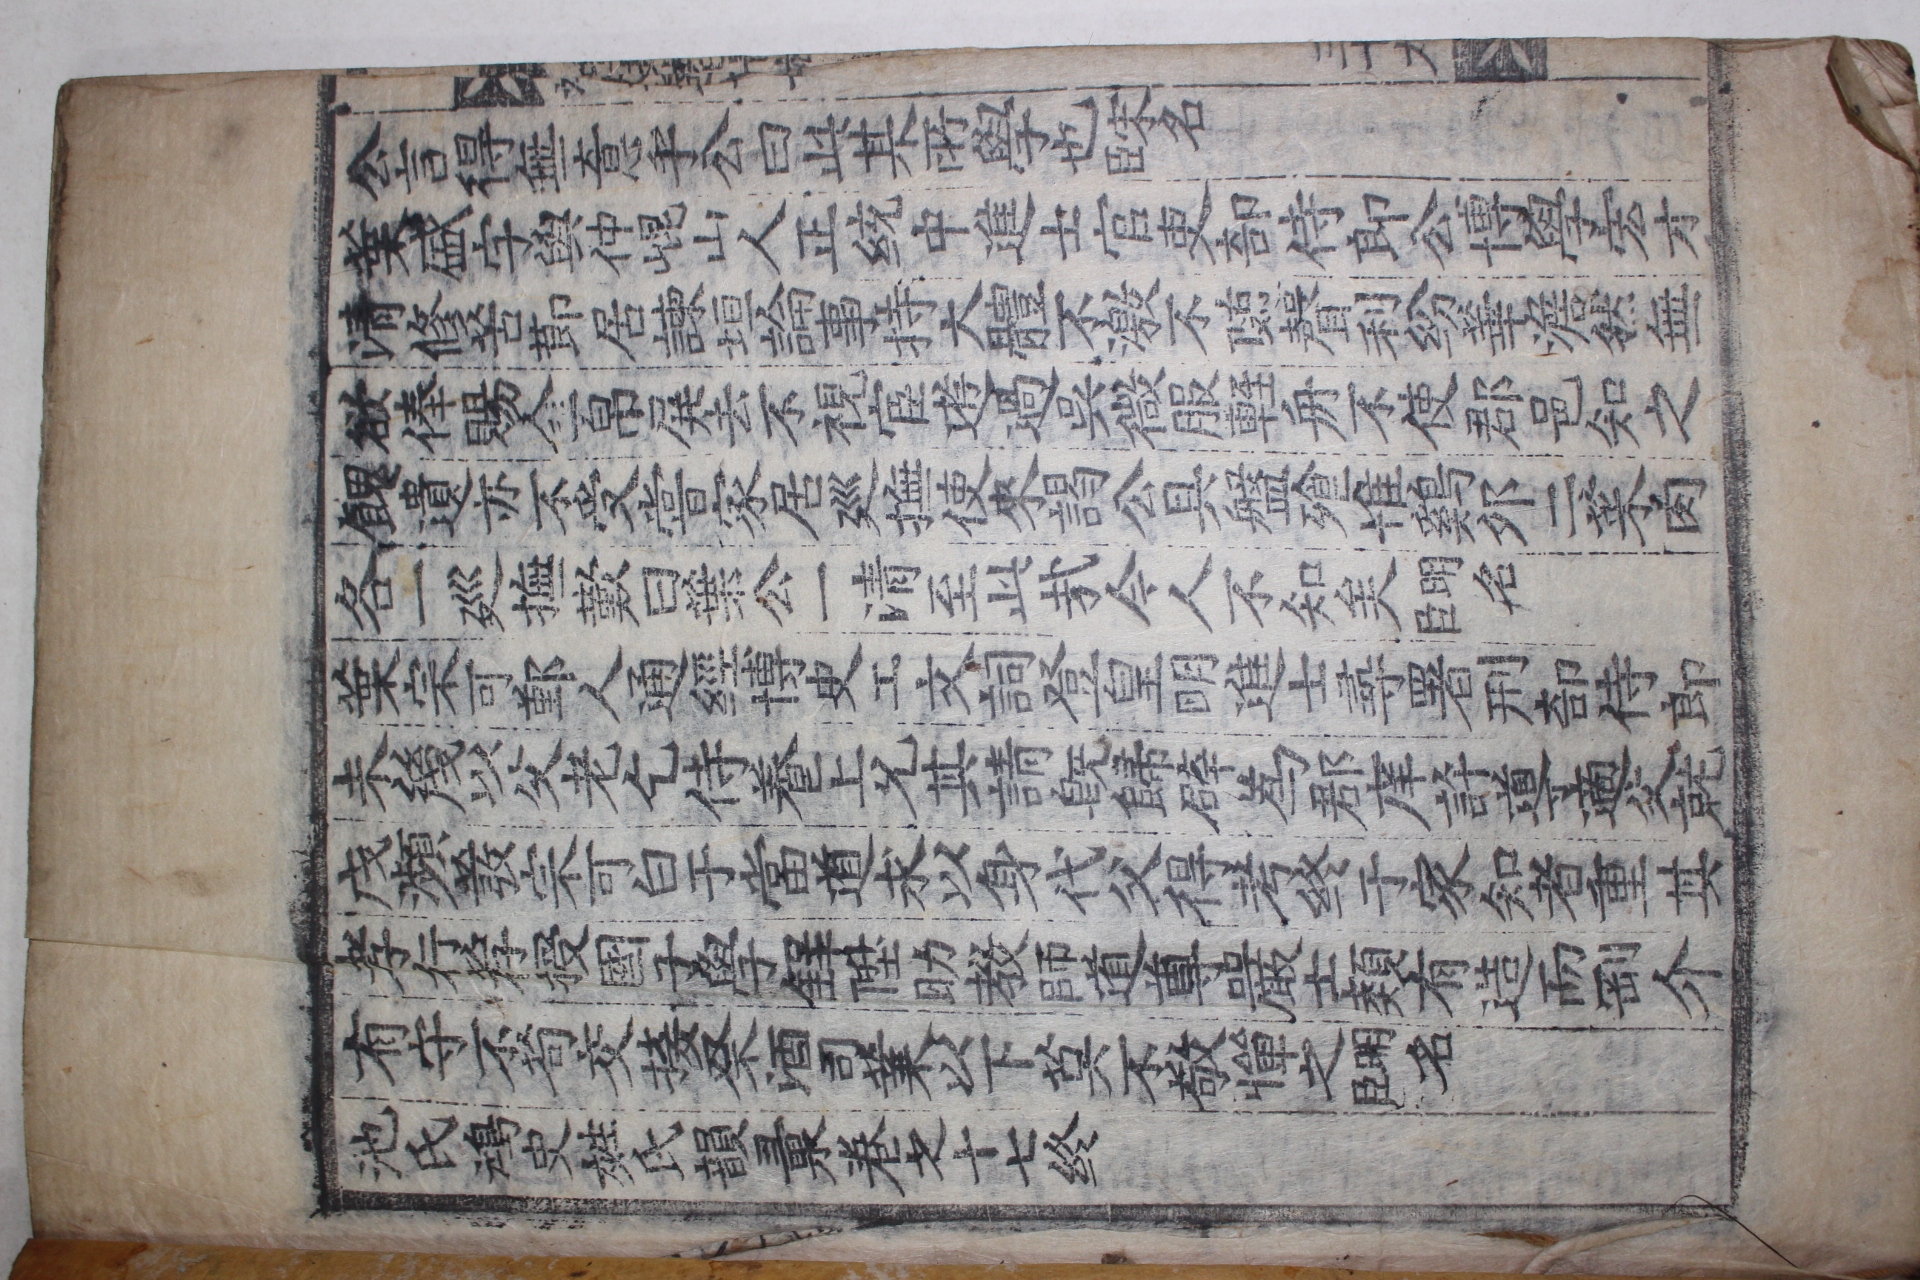 公言得無意乎公曰此某所學也宋名臣
葉盛字與仲崐山人正統中進士官吏部侍郎公博學宏才
清修苦節居諫垣論事持大體不激不隨聲利紛華澹然無
欲俸賜金帛屏去不視宦遊過吳微服輕舟不使郡邑知之
餽遺亦不受嘗家居廵撫使來謁公具盤飱惟鷄夘二菜肉
各一廵撫歎曰葉公一清至此㢤令人不知矣明名臣
葉宗可鄞人通經博史工文詞登皇明進士尋署刑部侍郎
未幾以父老乞侍養上允其請旣歸辟爲郡庠訓導適父就
戍瀕發宗可白于當道求以身代父得考終于家知者重其
孝行荐授國子學錄陞助教師道尊嚴士類有造而剛介
有守不苟交接祭酒司業以下莫不敬憚之明名臣
池氏鴻史姓氏韻彙卷之十七終
三十九